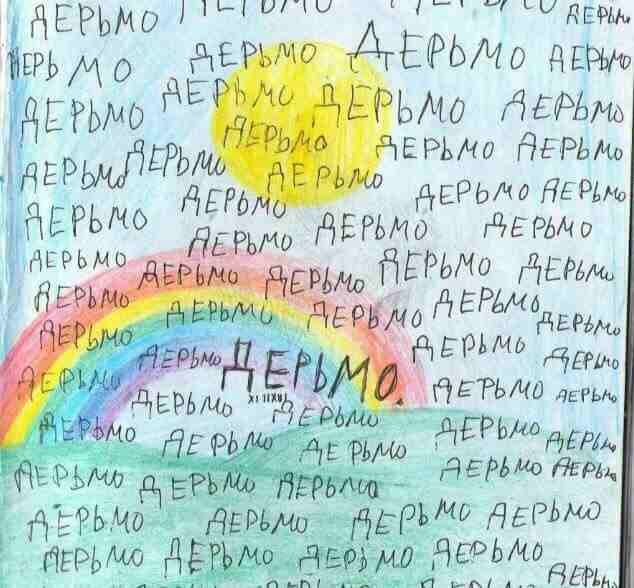 ДЕРЬМО ДЕРЬМО ДЕРЬМО ДЕРЬМО
ДЕРЬМО ДЕРЬМО ДЕРЬМО ДЕРЬМО
ДЕРЬМО ДЕРЬМО ДЕРЬМО ДЕРЬМО
ДЕРЬМО ДЕРЬМО ДЕРЬМО
ДЕРЬМО ДЕРЬМО ДЕРЬМО
ДЕРЬМО ДЕРЬМО ДЕРЬМО
ДЕРЬМО ДЕРЬМО ДЕРЬМО ДЕРЬМО
ДЕРЬМО ДЕРЬМО ДЕРЬМО
ДЕРЬМО ДЕРЬМО ДЕРЬМО
ДЕРЬМО ДЕРЬМО ДЕРЬМО ДЕРЬМО
ДЕРЬМО ДЕРЬМО ДЕРЬМО. ДЕРЬМО ДЕРЬМО
ДЕРЬМО ДЕРЬМО ДЕРЬМО
ДЕРЬМО ДЕРЬМО
ДЕРЬМО ДЕРЬМО ДЕРЬМО ДЕРЬМО ДЕРЬМО
ДЕРЬМО ДЕРЬМО ДЕРЬМО ДЕРЬМО ДЕРЬМО
ДЕРЬМО ДЕРЬМО ДЕРЬМО ДЕРЬМО
ДЕРЬМО ДЕРЬМО ДЕРЬМО ДЕРЬМО
ДЕРЬМО